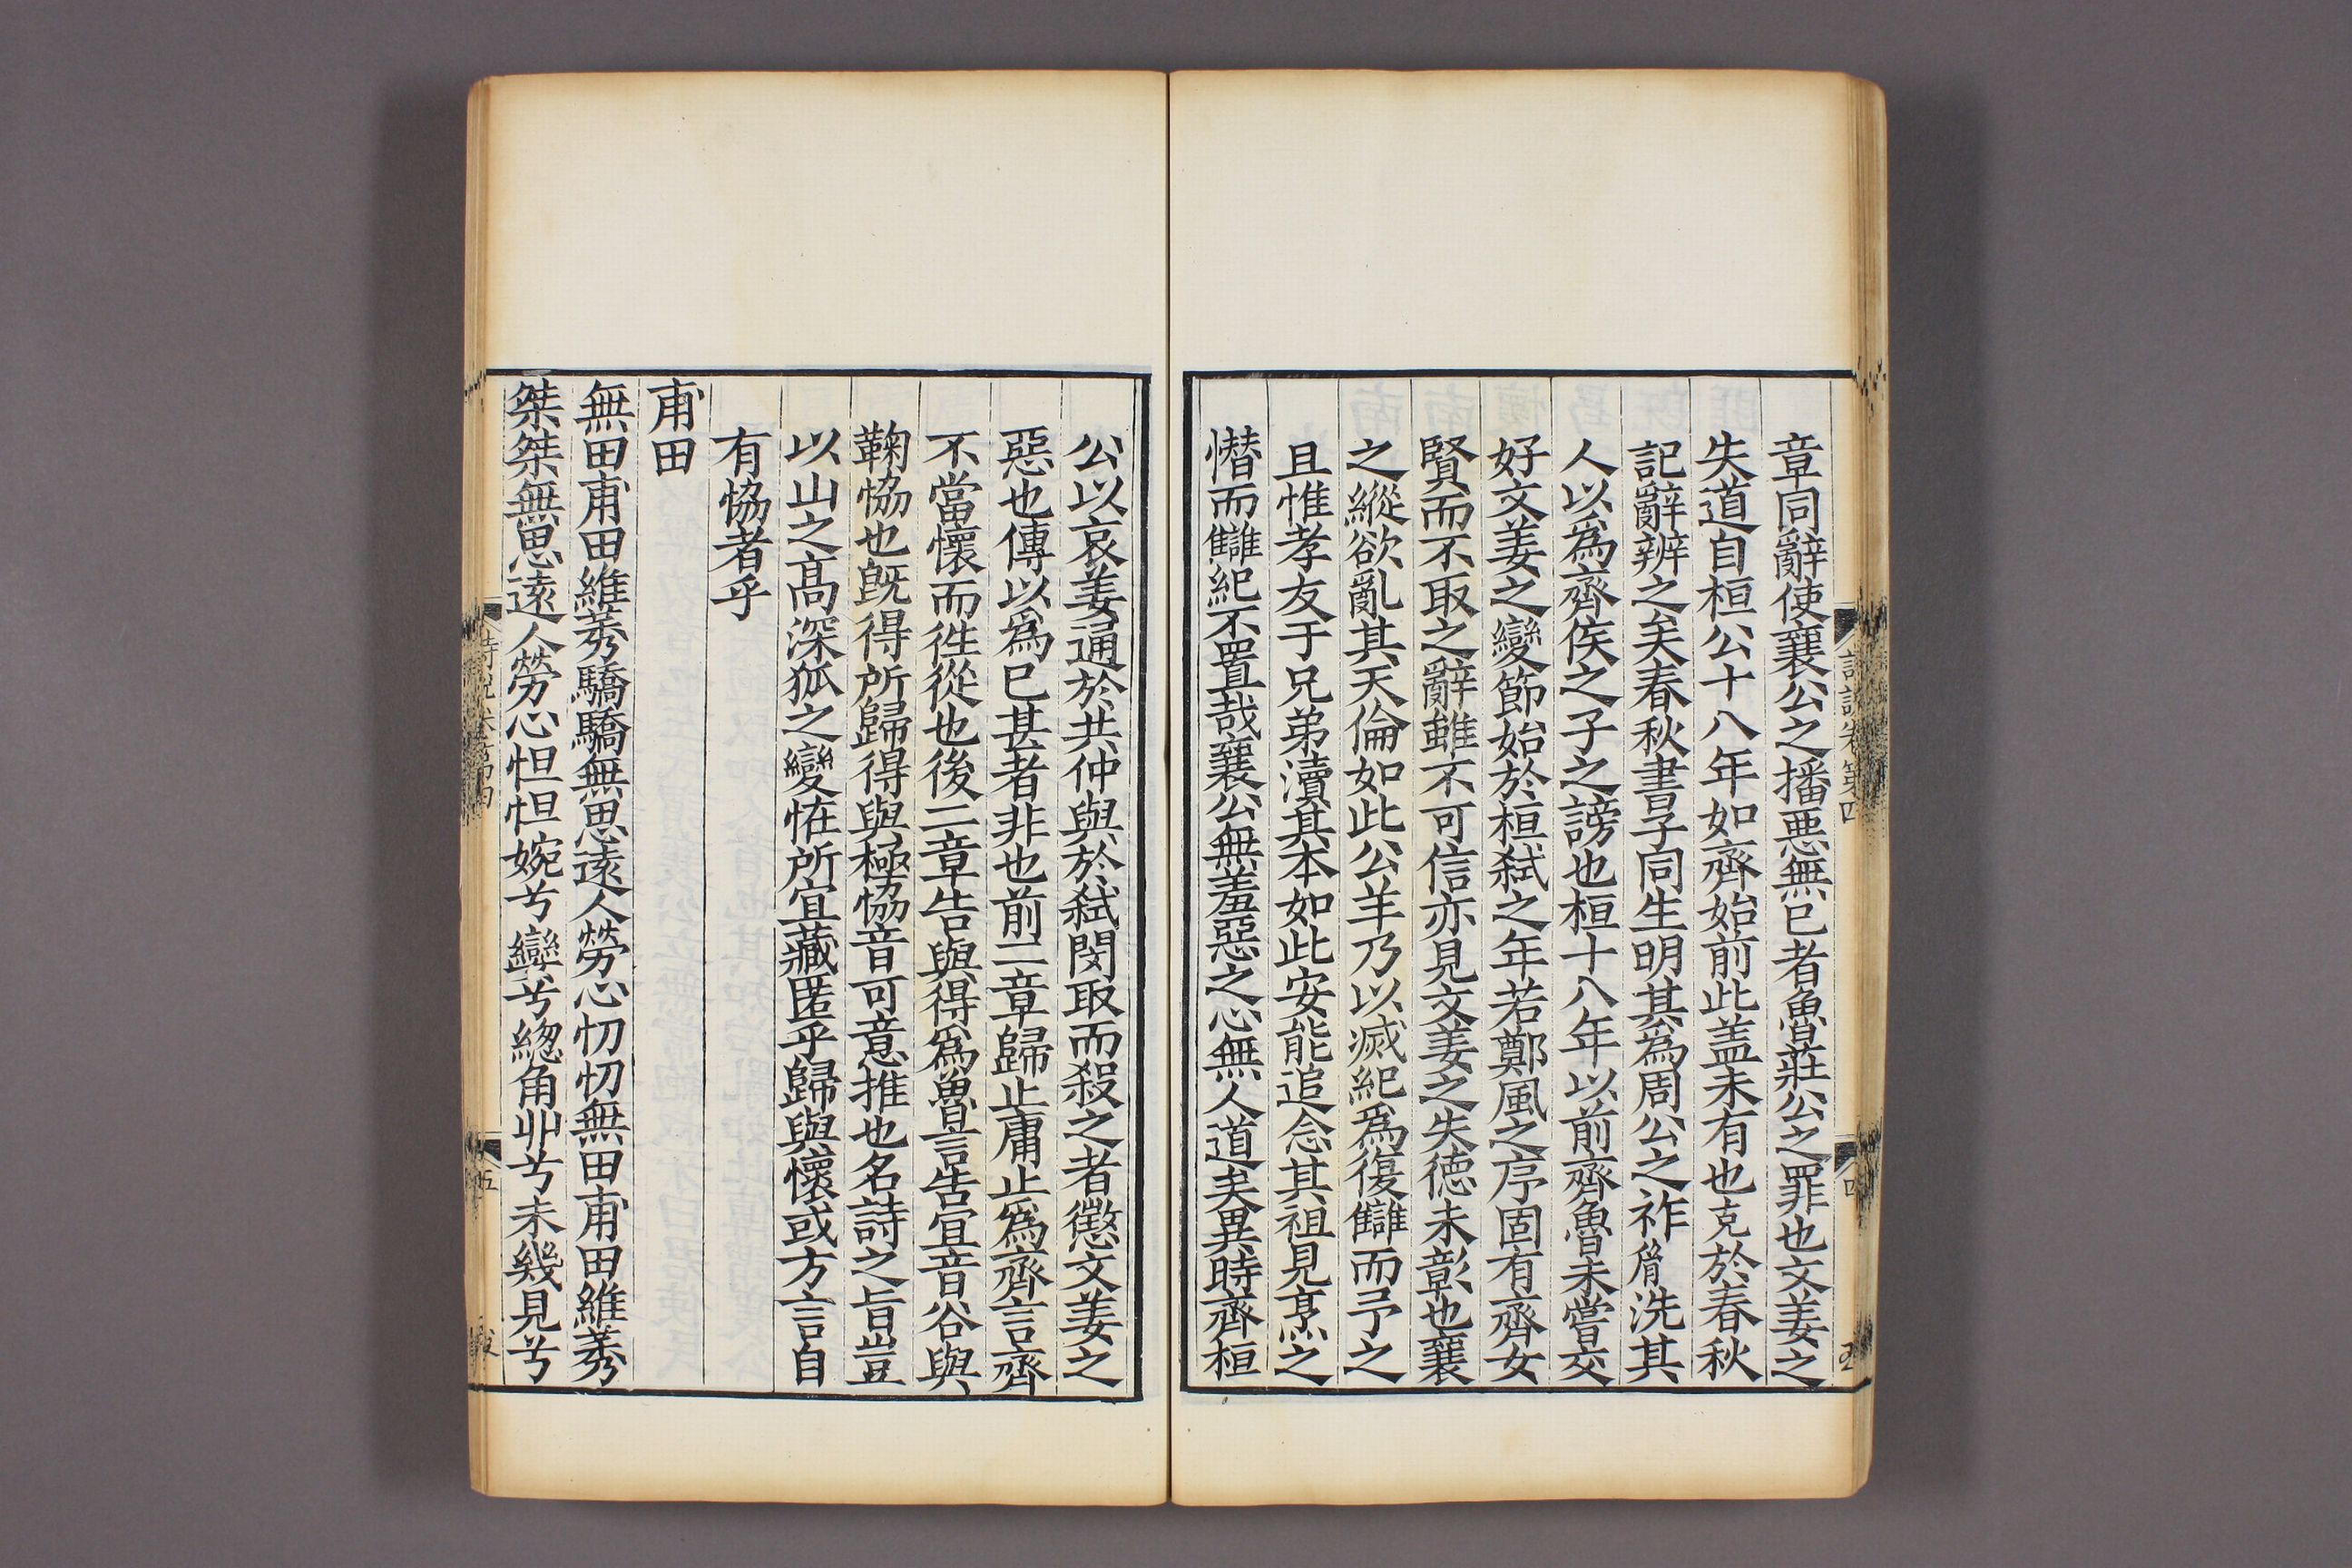 章同辭使襄公之播惡無已者魯莊公之罪也文姜之
失道自桓公十八年如齊始前此盖未有也克於春秋
記辭辨之矣春秋書子同生明其為周公之祚胤洗其
人以爲齊侯之子之謗也桓十八年以前齊魯未嘗交
好文姜之變節始於桓弑之年若鄭風之序固有齊女
賢而不取之辭雖不可信亦見文姜之失德未彰也襄
之縱欲亂其天倫如此公羊乃以滅紀爲復讎而予之
且惟孝友于兄弟瀆其本如此安能追念其祖見烹之
憯而讎紀不置哉襄公無羞惡之心無人道矣異時齊桓
詩說卷第四
四
公以哀姜通於共仲與於弑閔取而殺之者懲文姜之
惡也傳以為已甚者非也前二章歸止庸止爲齊言齊
不當懷而徃從也後二章告與得爲魯言告宜音谷與
鞠恊也既得所歸得與極恊音可意推也名詩之旨豈
以山之高深狐之變恠所宜藏匿乎歸與懷或方言自
有恊者乎
甫田
無田甫田維莠驕驕無思遠人勞心忉忉無田甫田維莠
桀桀無思遠人勞心怛怛婉兮孌兮緫角丱兮未幾見兮
詩說卷第四
五